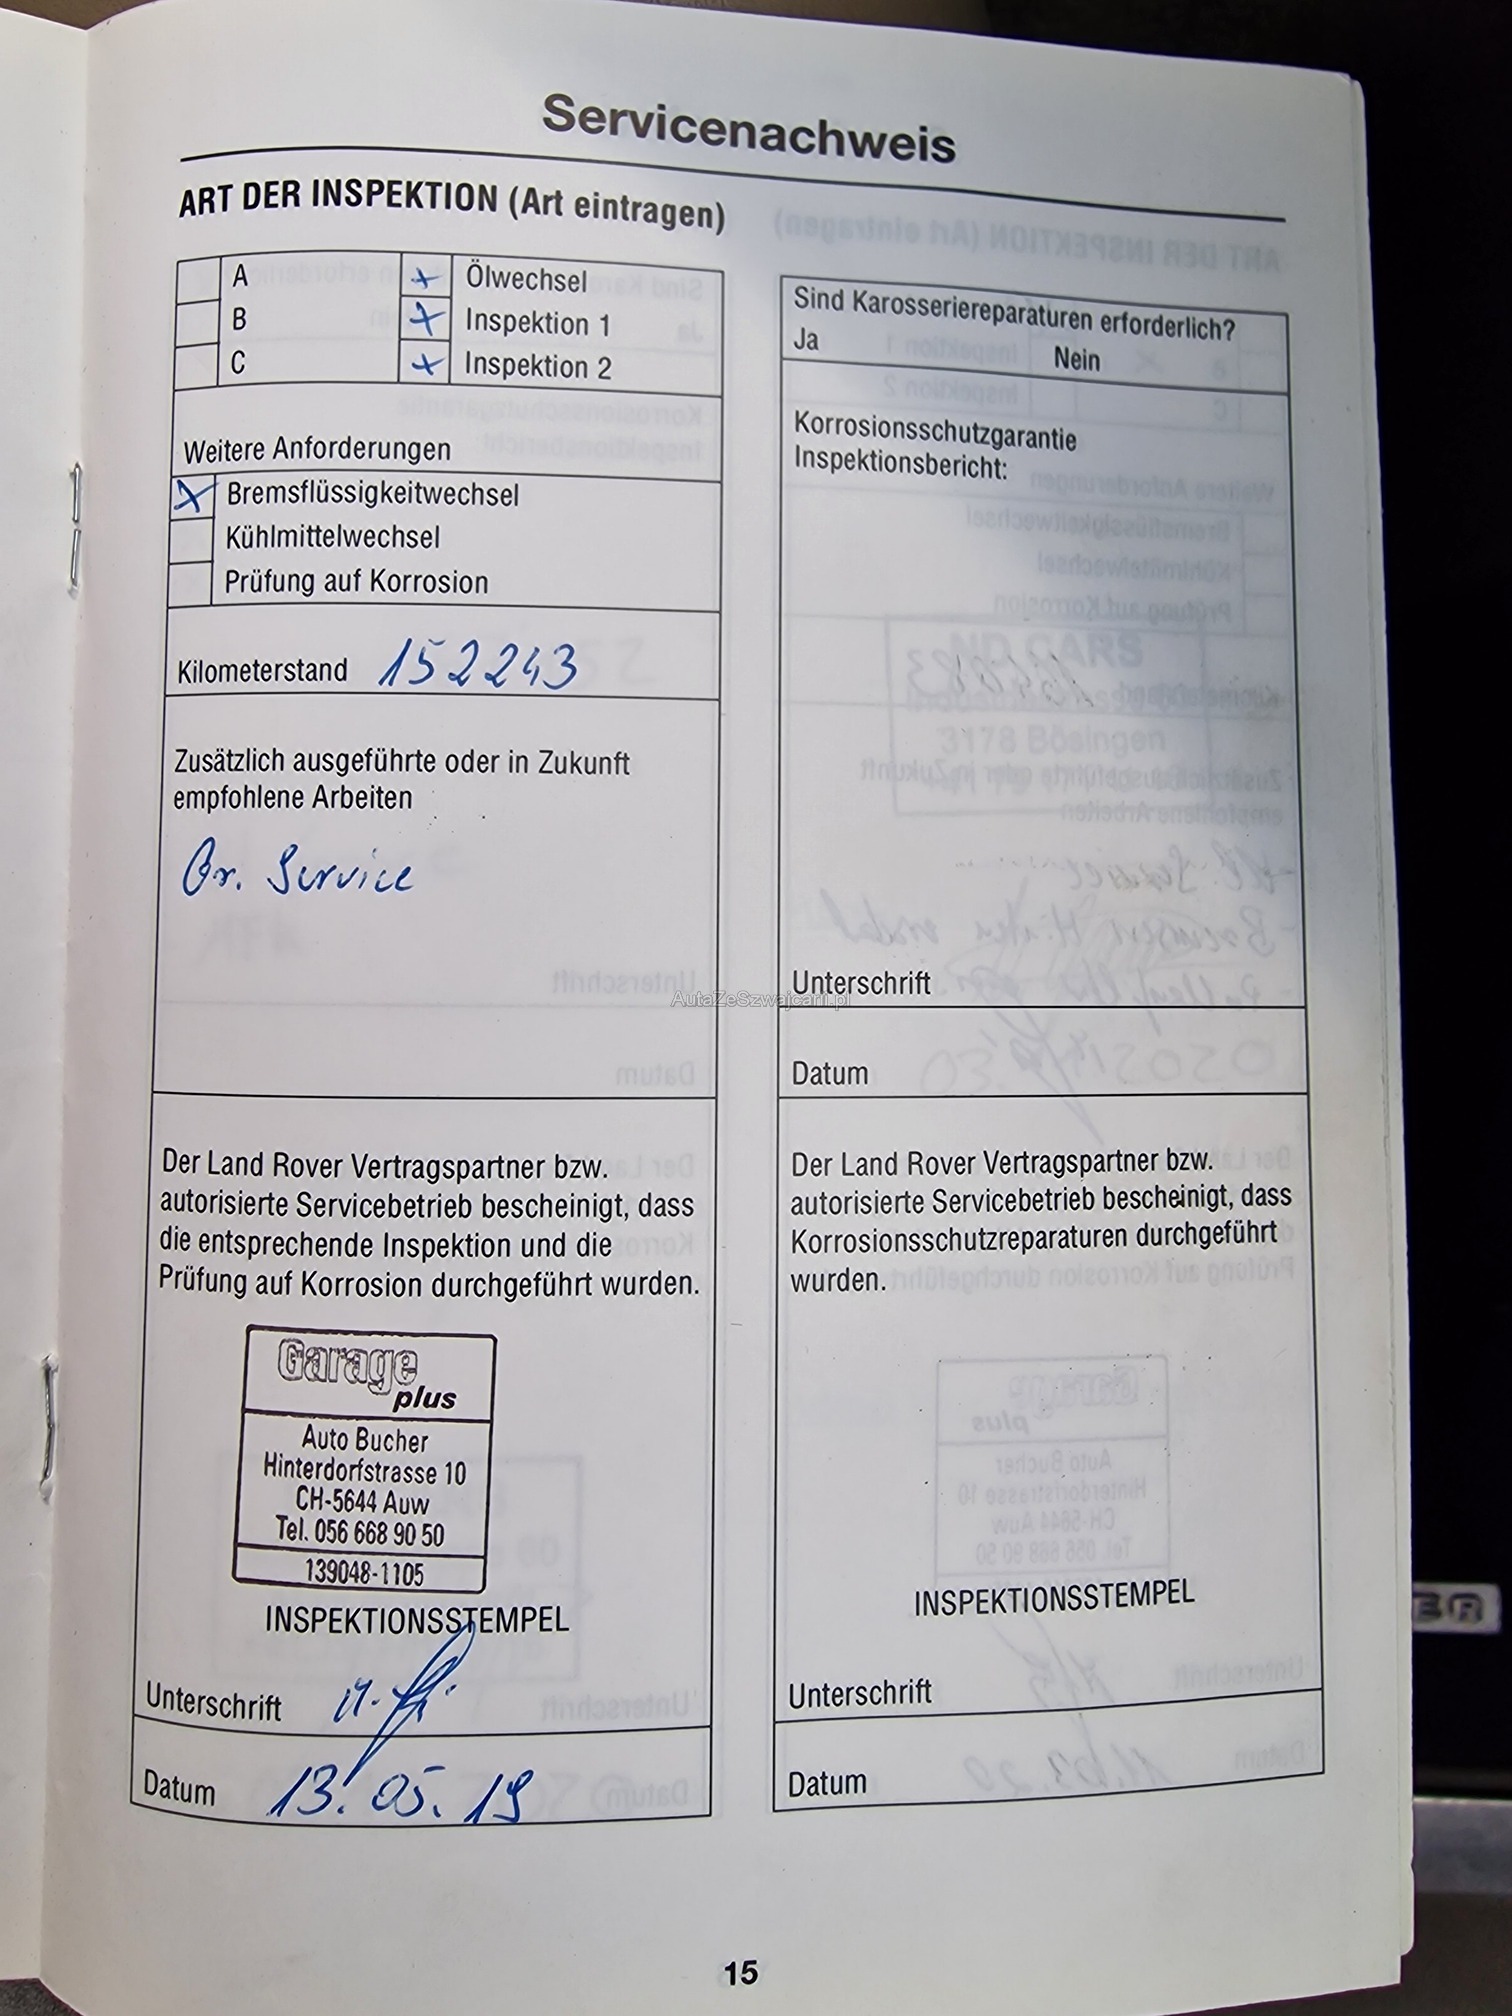 Servicenachweis
ART DER INSPEKTION (Art eintragen)
A
B
C
x Ölwechsel
x Inspektion 1
x Inspektion 2
Weitere Anforderungen
x Bremsflüssigkeitwechsel
Kühlmittelwechsel
Prüfung auf Korrosion
Kilometerstand 152243
Zusätzlich ausgeführte oder in Zukunft
empfohlene Arbeiten
Gr. Service
Der Land Rover Vertragspartner bzw.
autorisierte Servicebetrieb bescheinigt, dass
die entsprechende Inspektion und die
Prüfung auf Korrosion durchgeführt wurden.
Garage
plus
Auto Bucher
Hinterdorfstrasse 10
CH-5644 Auw
Tel. 056 668 90 50
139048-1105
INSPEKTIONSSTEMPEL
Unterschrift
Datum 13.05.19
Sind Karosseriereparaturen erforderlich?
Ja Nein
Korrosionsschutzgarantie
Inspektionsbericht:
Unterschrift
Datum
Der Land Rover Vertragspartner bzw.
autorisierte Servicebetrieb bescheinigt, dass
Korrosionsschutzreparaturen durchgeführt
wurden.
INSPEKTIONSSTEMPEL
Unterschrift
Datum
15
AutaZeSzwajcarii.pl
ER